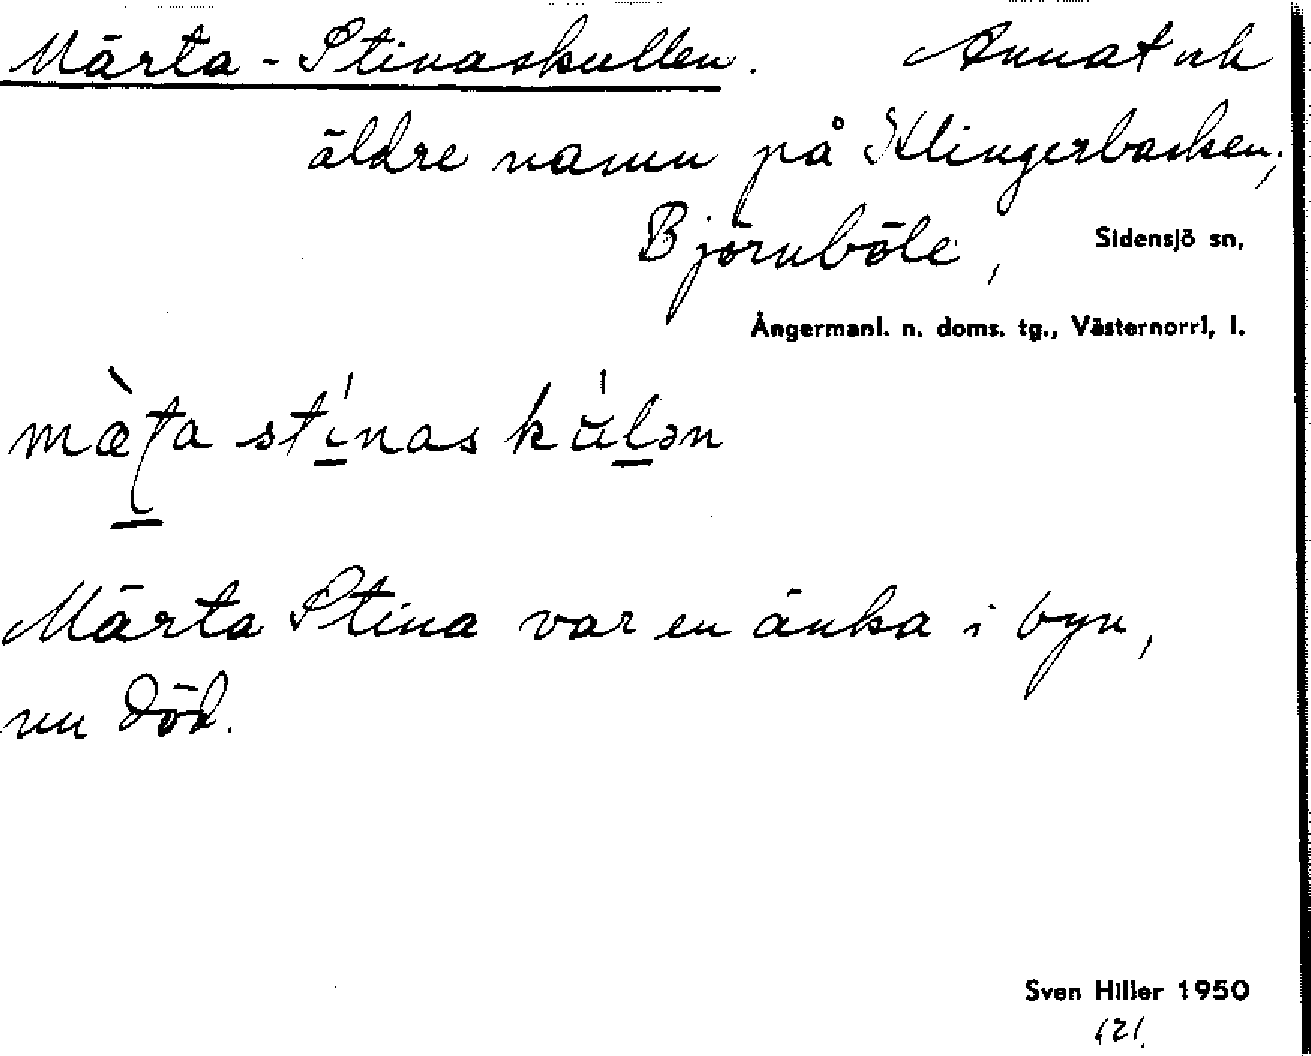 Märta-Stinaskullen. Annat och
äldre namn på Klingerbacken,
Björnböle, Sidensjö sn,
Ångermanl. n. doms. tg., Västernorrl, l.
stinas
Märta Stina var en änka i byn,
nu död.
Sven Hiller 1950
121.